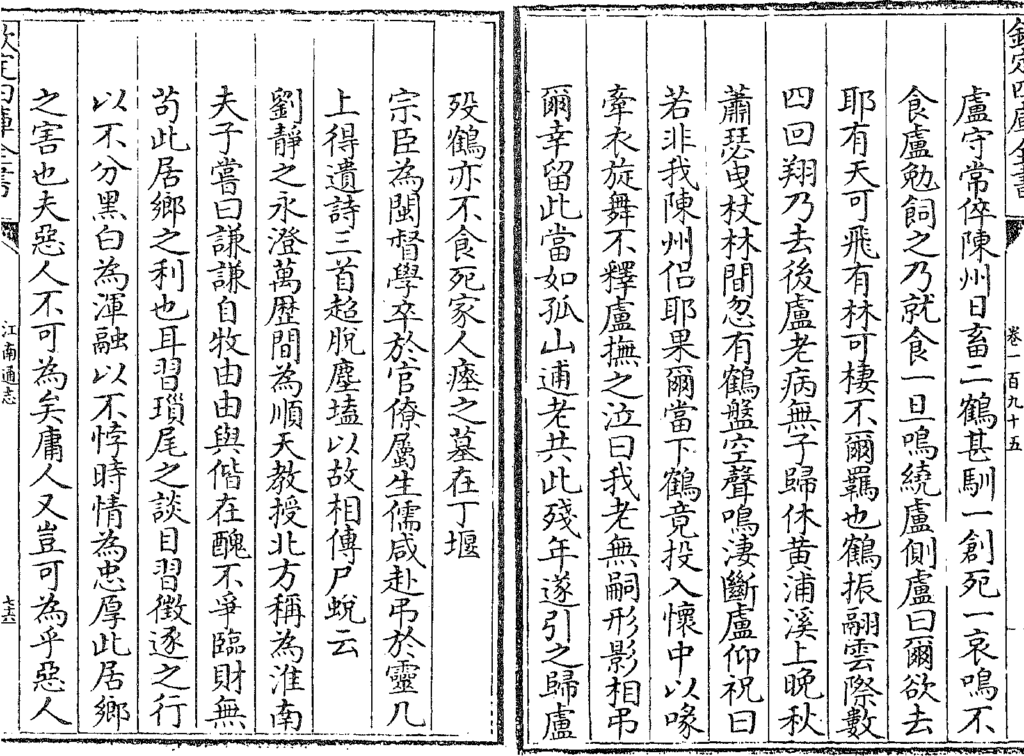 欽定四庫全書
卷一百九十五
盧守常倅陳州日畜二鶴甚馴一創死一哀鳴不
食盧勉飼之乃就食一旦鳴繞盧側盧曰爾欲去
耶有天可飛有林可棲不爾羈也鶴振翮雲際數
四回翔乃去後盧老病無子歸休黄浦溪上晚秋
蕭瑟曳杖林間忽有鶴盤空聲鳴淒斷盧仰祝曰
若非我陳州侣耶果爾當下鶴竟投入懷中以喙
牽衣旋舞不釋盧撫之泣曰我老無嗣形影相弔
爾幸留此當如孤山逋老共此殘年遂引之歸盧
殁鶴亦不食死家人瘞之墓在丁堰
宗臣為閩督學卒於官僚屬生儒咸赴弔於靈几
上得遺詩三首超脱塵壒以故相傳尸蜕云
劉靜之永澄萬歷間為順天教授北方稱為淮南
夫子嘗曰謙謙自牧由由與偕在醜不爭臨財無
茍此居鄉之利也耳習瑣尾之談目習徵逐之行
以不分黑白為渾融以不悖時情為忠厚此居鄉
之害也夫惡人不可為矣庸人又豈可為乎惡人
欽定四庫全書
江南通志
七十六